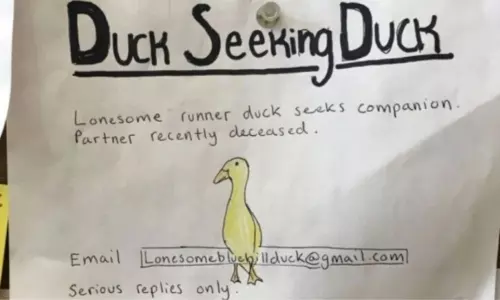 Duck Seeking Duck
Lonesome runner duck seeks companion.
Partner recently deceased.
Email Lonesomebluebillduck@gmail.com
Serious replies only.